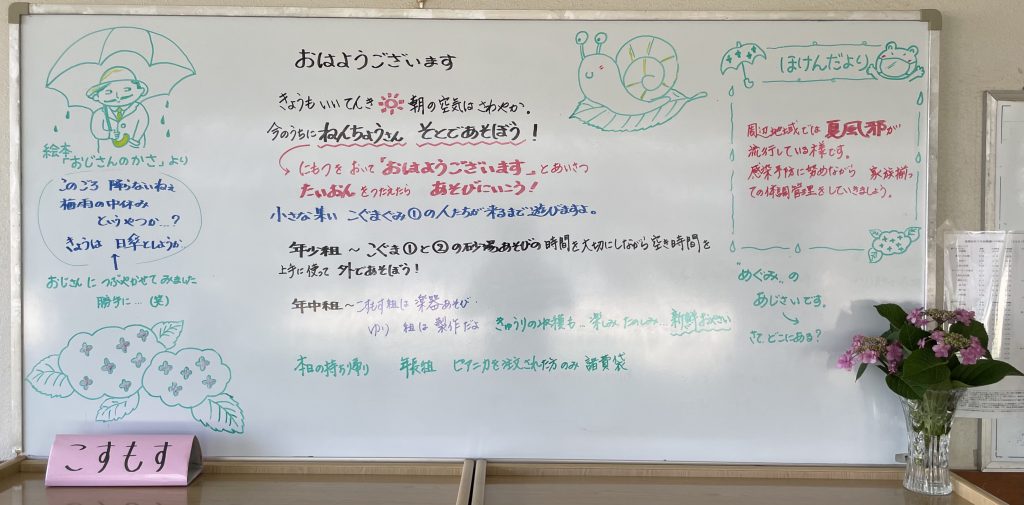 おはようございます
きょうもいいてんき 朝の空気はさわやか。
今のうちに ねんちょうさん そとであそぼう!
にもつを おいて "おはようございます" とあいさつ
たいおんをつたえたら あそびにいこう!
小さな集い こぐまぐみ①の人たちが来るまで遊びますよ。
年少組 ~ こぐま①と②の砂場あそびの時間を大切にしながら空き時間を
上手に使って 外であそぼう!
年中組~こすもす組は 楽器あそび
ゆり 組は 製作だよ
きゅうりの収穫も… 楽しみ たのしみ… 新鮮おやさい
本日の持ち帰り 年長組 ピアニカを注文された方のみ 諸費袋
絵本
「おじさんのかさ」より
このごろ 降らないねぇ
梅雨の中休み
というやつか…?
きょうは 日傘としようか
おじさんに つぶやかせてみました
勝手に…(笑)
ほけんだより
周辺地域では 夏風邪が
流行している様です。
感染予防に努めながら 家族揃
っての体調管理をしていきましょう。
"めぐみ"の
あじさいです。
さて、どこにある?
こすもす